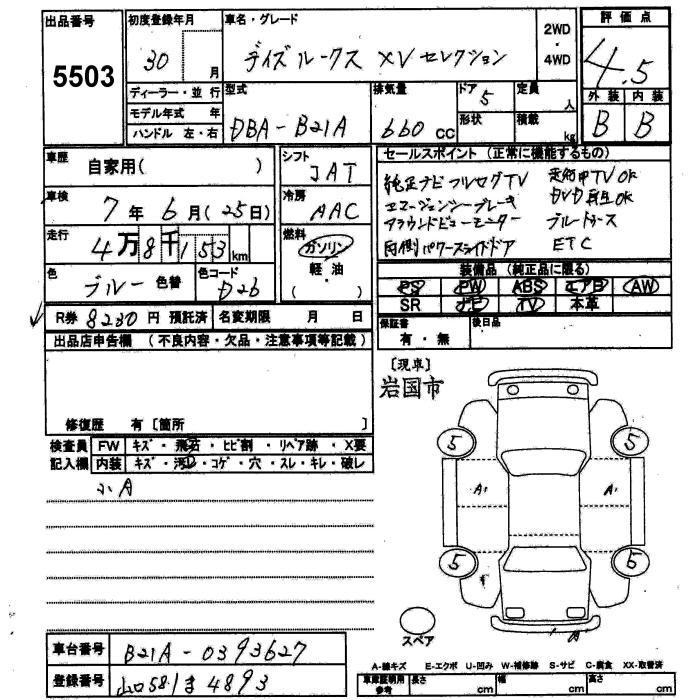 出品番号 5503
初度登録年月 30 月
車名・グレード デイズルークス XVセレクション
2WD ・ 4WD
評価点 4.5
外装 B 内装 B
ディーラー・並行
モデル年式 年
ハンドル 左・右
型式 DBA-B21A
排気量 660 CC
ドア 5
形状
定員 人
積載 kg
車歴 自家用( )
シフト IAT
車検 7年 6月 (25日)
冷房 AAC
走行 4万8千153km
燃料 ガソリン 軽油 ( )
色 ブルー 色替
色コード D26
セールスポイント (正常に機能するもの)
純正ナビ フルセグTV 走行中TV OK
エマージェンシーブレーキ DVD再生OK
アラウンドビューモニター ブルートゥース
両側パワースライドドア ETC
装備品 (純正品に限る)
PS PW ABS エアB AW
SR ナビ TV 本革
R券 8230 円 預託済 名変期限 月 日
保証書 有・無
後日品
出品店申告欄 (不良内容・欠品・注意事項等記載)
修復歴 有 [箇所 ]
[現車]
岩国市
検査員記入欄
FW キズ・飛石・ヒビ割・リペア跡・X要
内装 キズ・汚レ・コゲ・穴・スレ・キレ・破レ
小A
5 5
A' A'
5 5
A'
スペア
車台番号 B21A-0393627
登録番号 山口581ま4893
A-線キズ E-エクボ U-凹み W-補修跡 S-サビ C-腐食 XX-取替済
車庫証明用参考 長さ cm 幅 cm 高さ cm